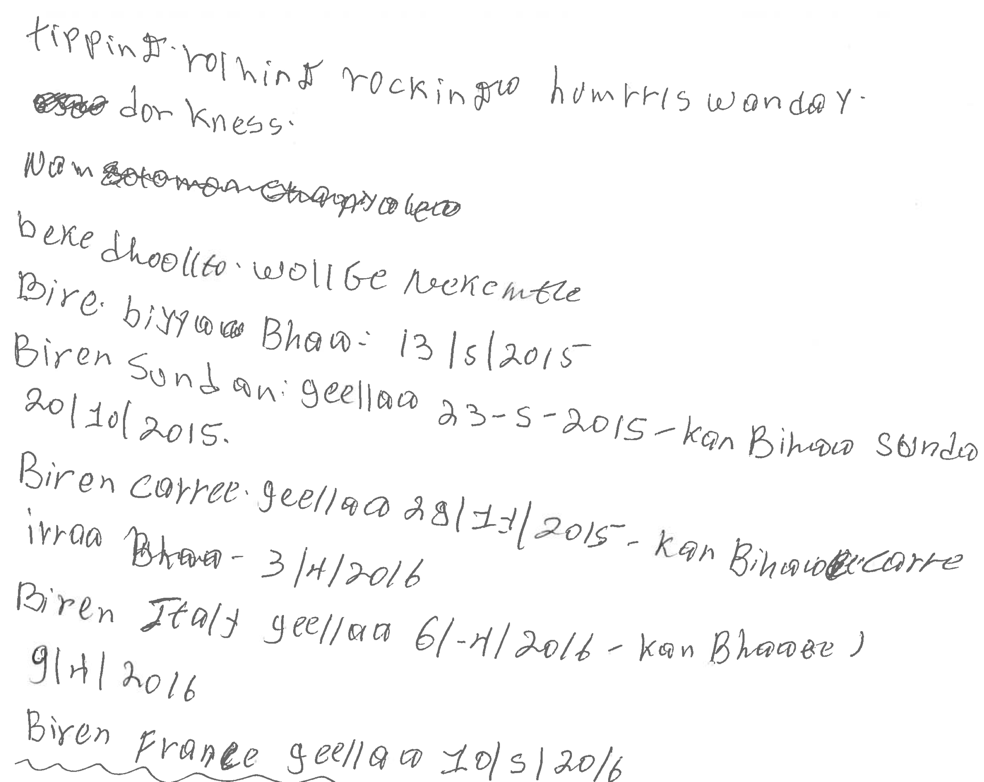 tipping. rolhing rockingw humrris wanday.
dorkness.
Nam
beke dhoollto. wollGe Nekemtle
Bire. biyyaa Bhaa: 13/5/2015
Biren Sundan: geellaa 23-5-2015-kan Bihaaw sunda
20/10/2015.
Biren carree. geellaa 28/11/2015- kan Bihaw carre
irraa Bhaa- 3/4/2016
Biren Italy geellaa 6/-4/2016- kan Bhaaee)
9/4/2016
Biren France geellaa 10/5/2016